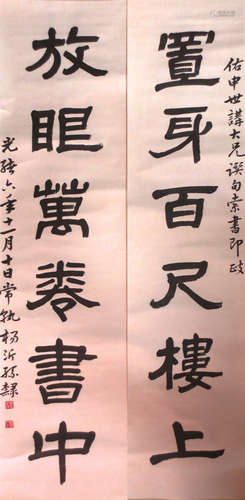 佑申世講大兄撰句索書即政
置身百尺樓上
放眼萬卷書中
光緒六年十一月十日常熟楊沂孫隸